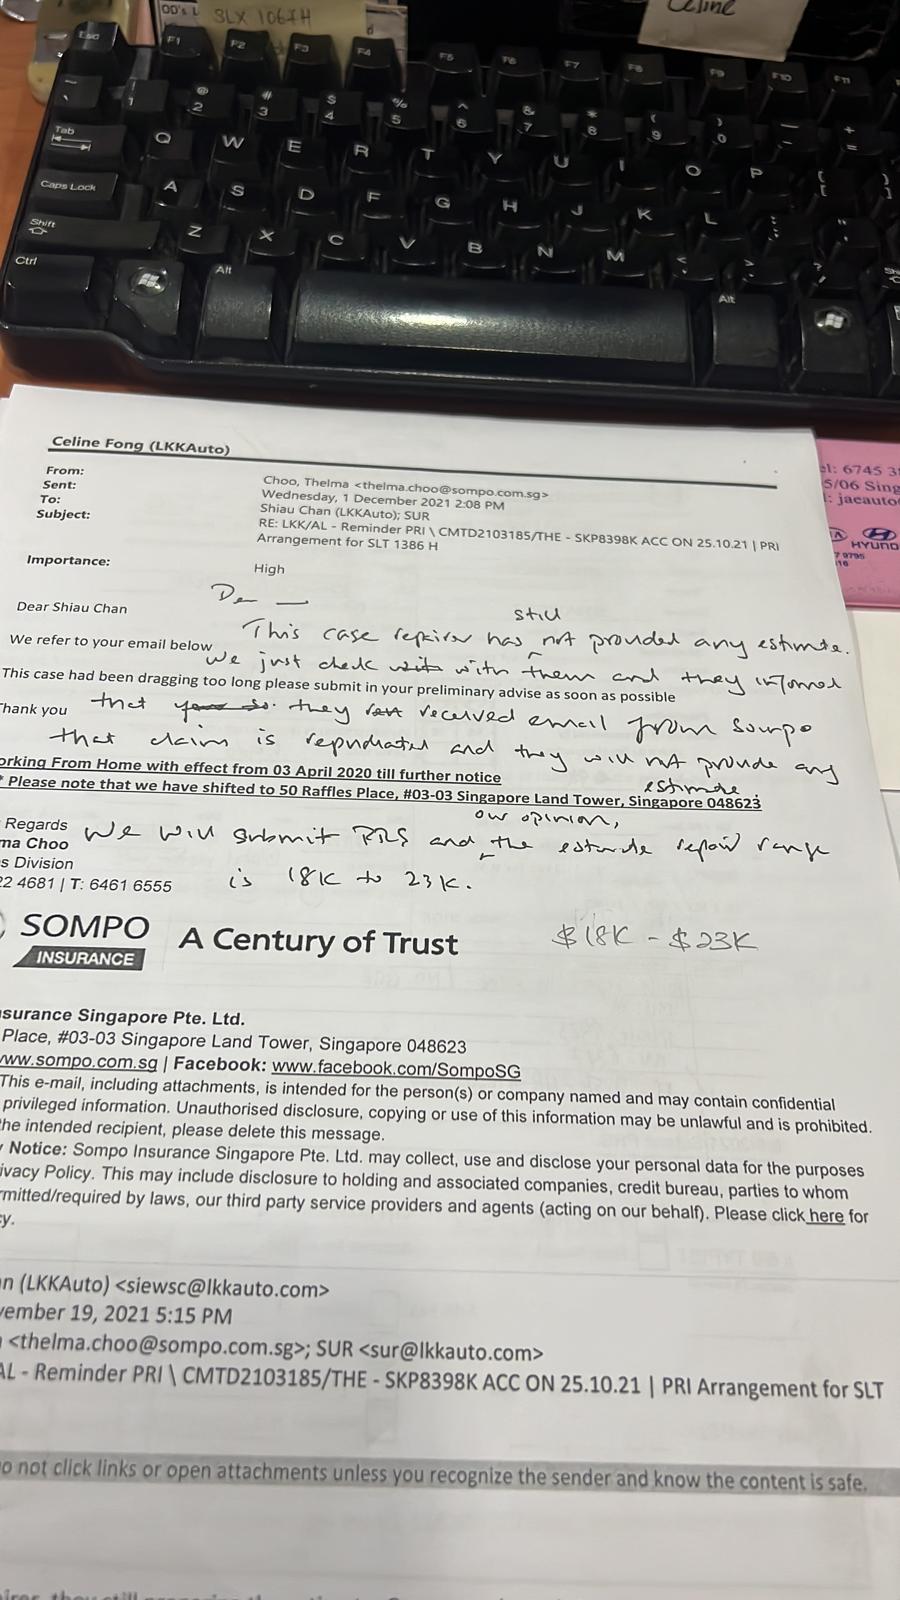 OD's L
SLX 1067H
Celine
Esc F1 F2 F3 F4 F5 F6 F7 F8 F9 F10 F11
~ ` ! 1 @ 2 # 3 $ 4 % 5 ^ 6 & 7 * 8 ( 9 ) 0 _ - + =
Tab Q W E R T Y U I O P { [ } ]
Caps Lock A S D F G H J K L : ; " '
Shift Z X C V B N M < , > . ? / Shi
Ctrl Alt Alt
el: 6745 3
5/06 Sing
: jaeauto
HYUND
7 9795
Celine Fong (LKKAuto)
From: Choo, Thelma <thelma.choo@sompo.com.sg>
Sent: Wednesday, 1 December 2021 2:08 PM
To: Shiau Chan (LKKAuto); SUR
Subject: RE: LKK/AL - Reminder PRI \ CMTD2103185/THE - SKP8398K ACC ON 25.10.21 | PRI
Arrangement for SLT 1386 H
Importance: High
Dear Shiau Chan
This case repairer has still not provided any estimate.
We refer to your email below
We just check with them and they informed
This case had been dragging too long please submit in your preliminary advise as soon as possible
Thank you
that they received email from Sompo
that claim is repudiated and they will not provide any estimate.
orking From Home with effect from 03 April 2020 till further notice
* Please note that we have shifted to 50 Raffles Place, #03-03 Singapore Land Tower, Singapore 048623
Regards
We will submit and our opinion, the estimate repair range
ma Choo
s Division
is 18K to 23K.
22 4681 | T: 6461 6555
SOMPO
INSURANCE
A Century of Trust
$18K - $23K
surance Singapore Pte. Ltd.
Place, #03-03 Singapore Land Tower, Singapore 048623
www.sompo.com.sg | Facebook: www.facebook.com/SompoSG
This e-mail, including attachments, is intended for the person(s) or company named and may contain confidential
privileged information. Unauthorised disclosure, copying or use of this information may be unlawful and is prohibited.
he intended recipient, please delete this message.
y Notice: Sompo Insurance Singapore Pte. Ltd. may collect, use and disclose your personal data for the purposes
ivacy Policy. This may include disclosure to holding and associated companies, credit bureau, parties to whom
rmitted/required by laws, our third party service providers and agents (acting on our behalf). Please click here for
cy.
an (LKKAuto) <siewsc@lkkauto.com>
vember 19, 2021 5:15 PM
<thelma.choo@sompo.com.sg>; SUR <sur@lkkauto.com>
AL - Reminder PRI \ CMTD2103185/THE - SKP8398K ACC ON 25.10.21 | PRI Arrangement for SLT
o not click links or open attachments unless you recognize the sender and know the content is safe.